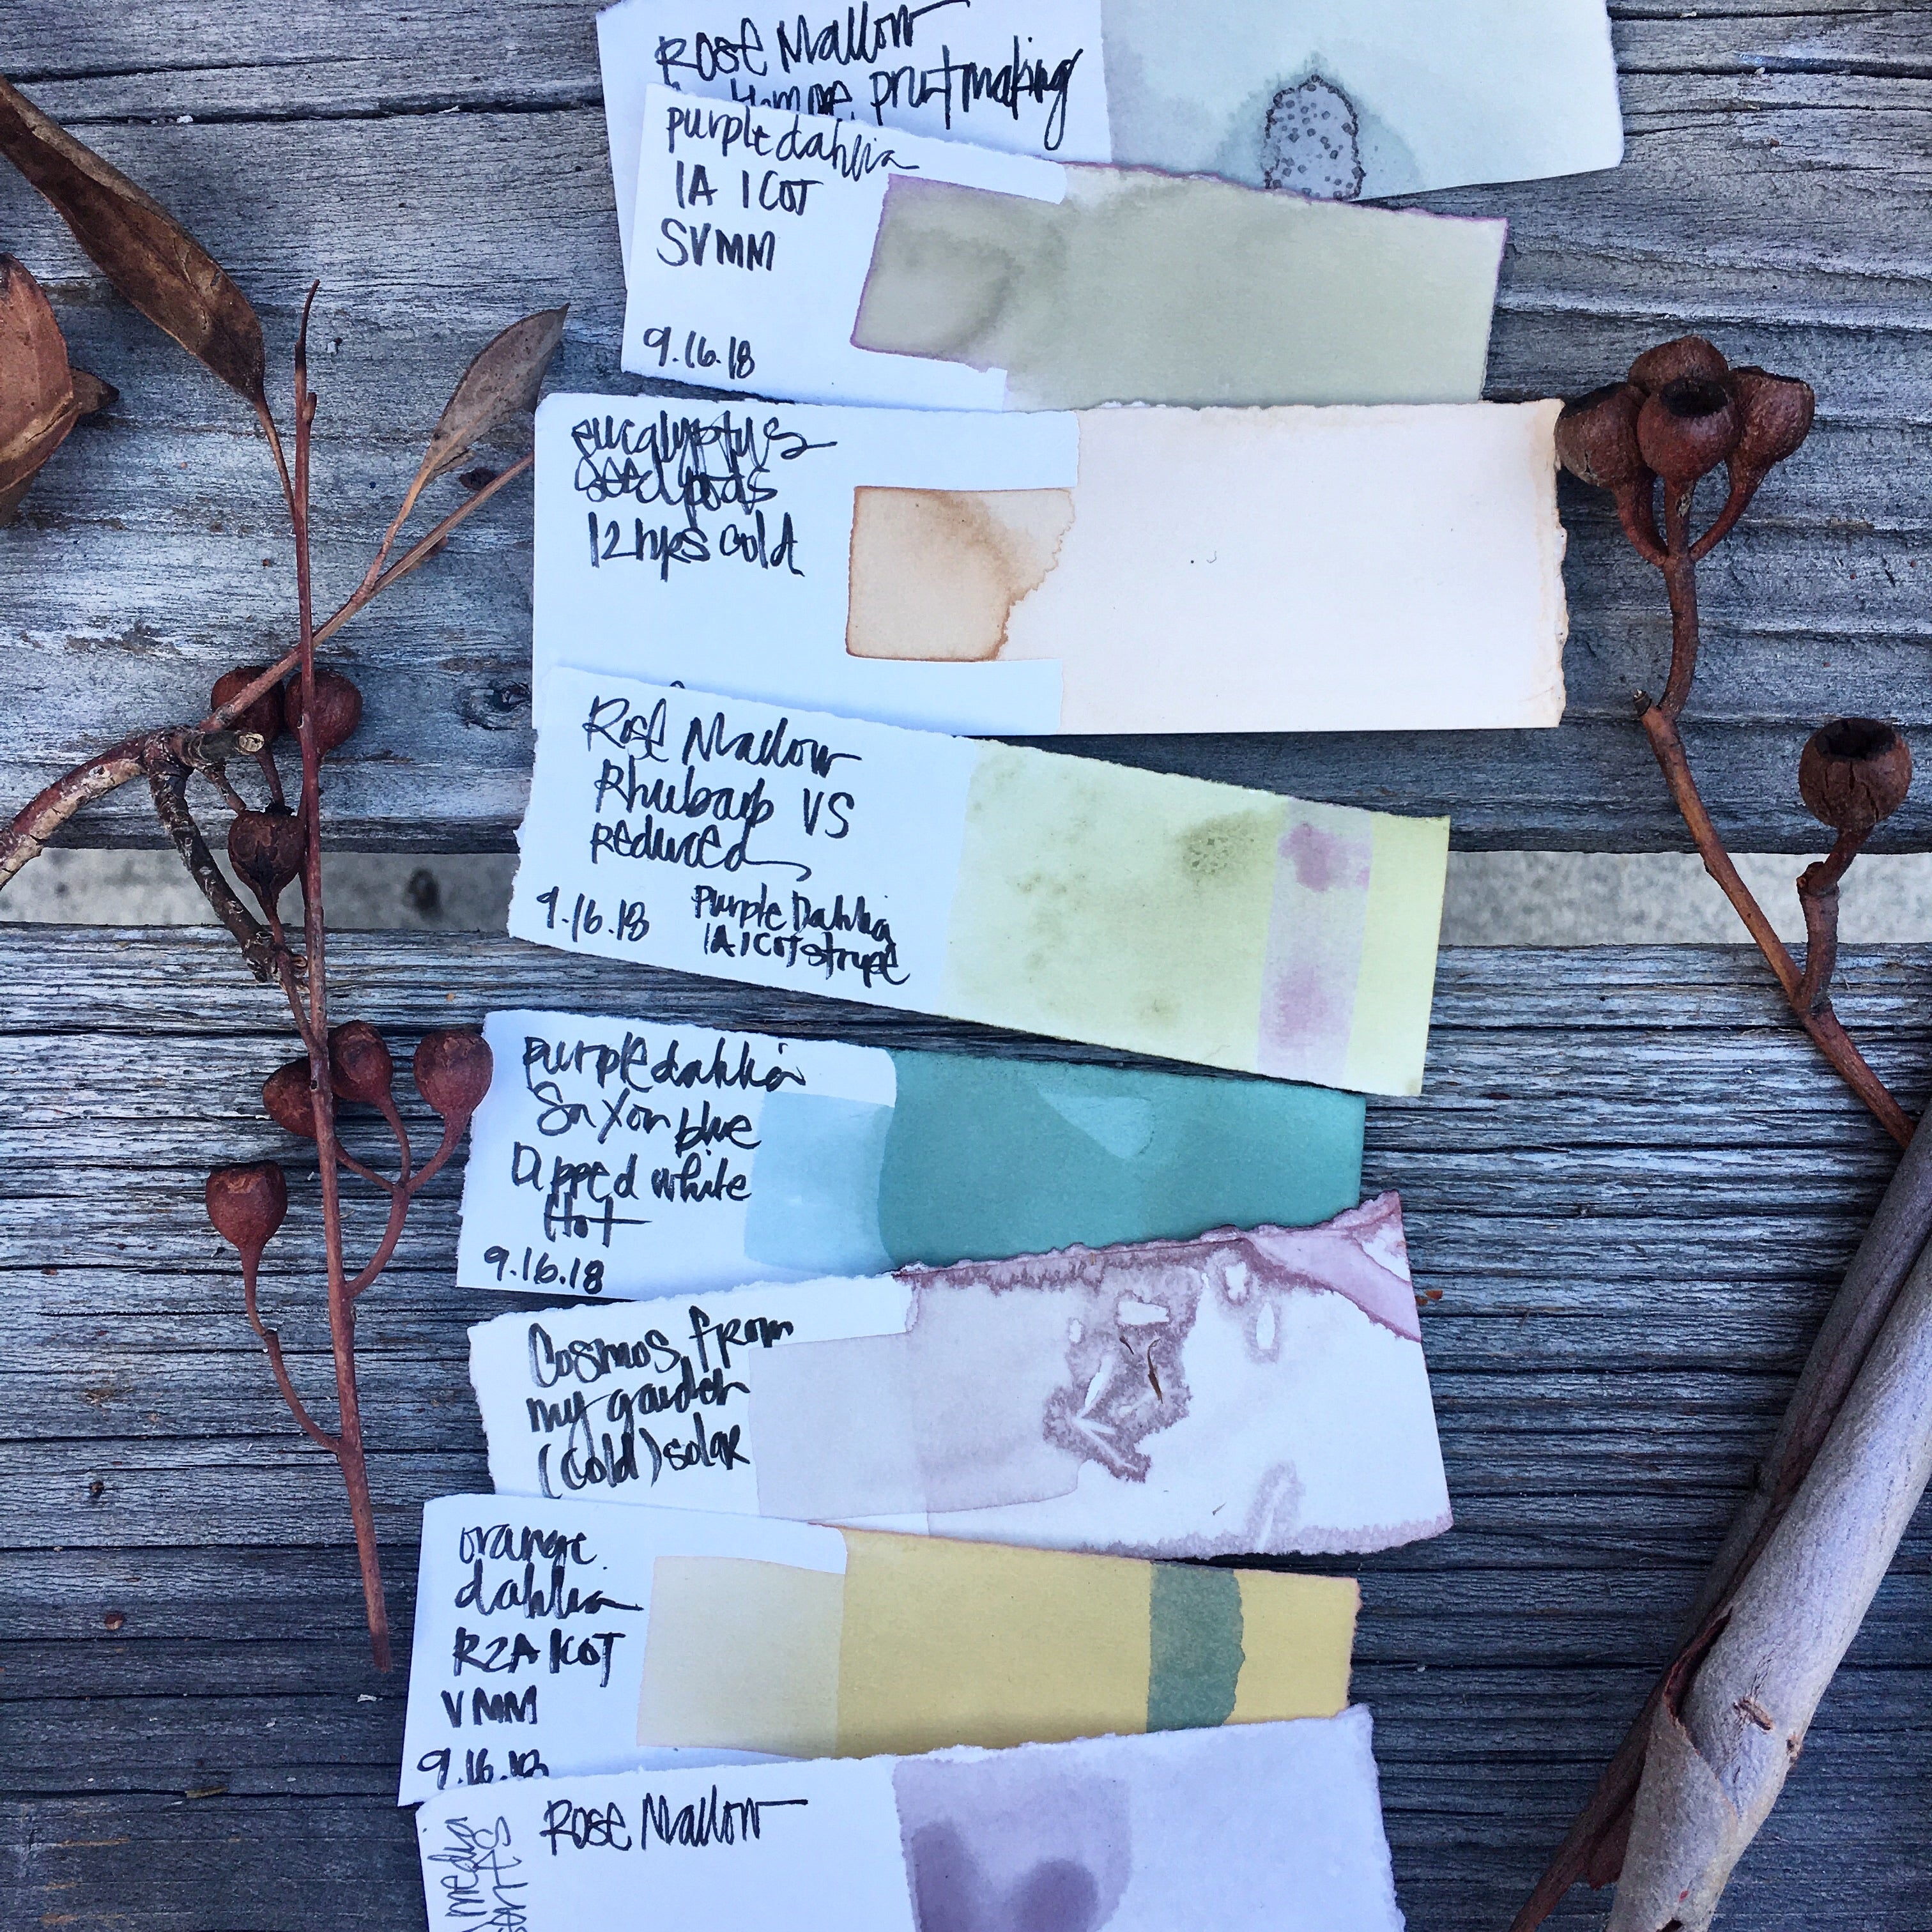 Rose Mallow
printmaking
purple dahlia
1A 1 COT
SVMM
9.16.18
eucalyptus
seed pods
12 hrs cold
Rose Mallow
Rhubarb VS
Reduced
9.16.18
Purple Dahlia
1A 1 COT stripe
purple dahlia
Saxon blue
Dipped white
Hot
9.16.18
Cosmos from
my garden
(cold) solar
orange
dahlia
R2A 1COT
VMM
9.16.18
Rose Mallow
media